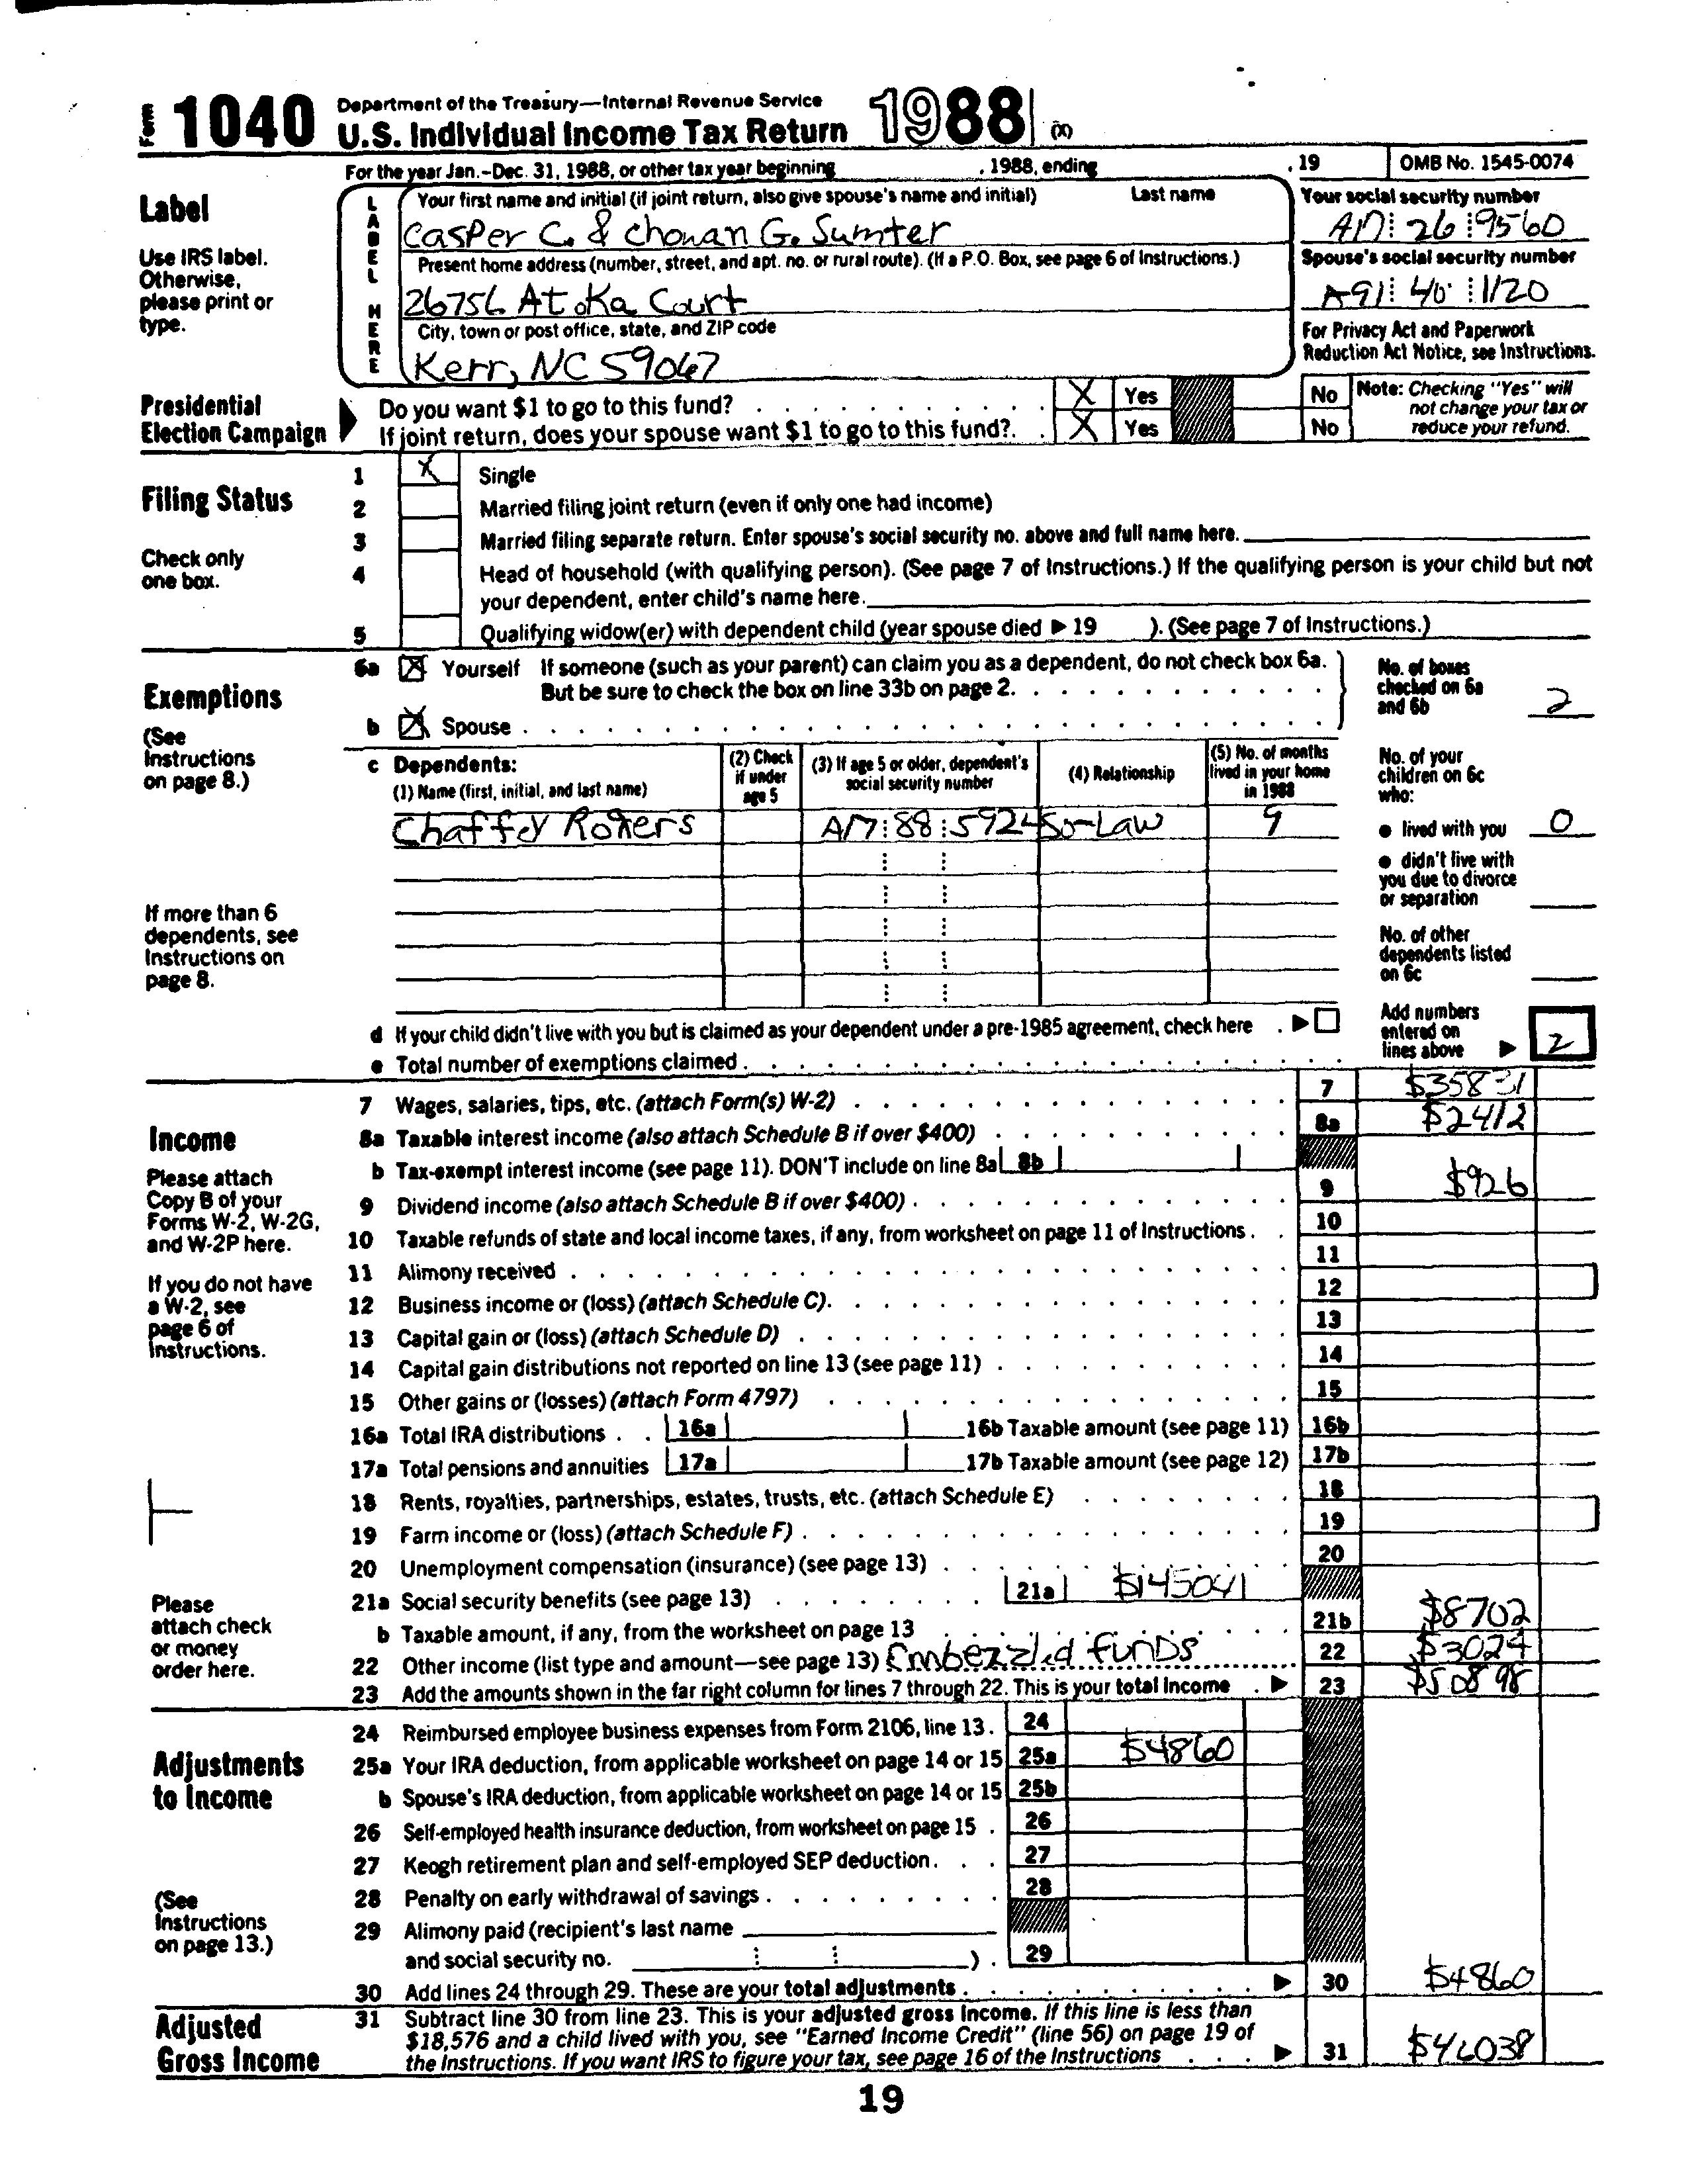 Form 1040 Department of the Treasury—Internal Revenue Service
U.S. Individual Income Tax Return 1988 (X)
For the year Jan.-Dec. 31, 1988, or other tax year beginning , 1988, ending , 19 OMB No. 1545-0074
Label
Use IRS label.
Otherwise,
please print or
type.
LABEL HERE
Your first name and initial (if joint return, also give spouse's name and initial) Last name
Casper C. & Chowan G. Sumter
Present home address (number, street, and apt. no. or rural route). (If a P.O. Box, see page 6 of Instructions.)
26756 Atoka Court
City, town or post office, state, and ZIP code
Kerr, NC 59067
Your social security number
26 9560
Spouse's social security number
A91 40 1120
For Privacy Act and Paperwork
Reduction Act Notice, see Instructions.
Presidential
Election Campaign
Do you want $1 to go to this fund? X Yes No
If joint return, does your spouse want $1 to go to this fund? X Yes No
Note: Checking "Yes" will
not change your tax or
reduce your refund.
Filing Status
Check only
one box.
1 X Single
2 Married filing joint return (even if only one had income)
3 Married filing separate return. Enter spouse's social security no. above and full name here.
4 Head of household (with qualifying person). (See page 7 of Instructions.) If the qualifying person is your child but not
your dependent, enter child's name here.
5 Qualifying widow(er) with dependent child (year spouse died ▶ 19 ). (See page 7 of Instructions.)
Exemptions
(See
Instructions
on page 8.)
6a X Yourself If someone (such as your parent) can claim you as a dependent, do not check box 6a.
But be sure to check the box on line 33b on page 2.
b X Spouse
No. of boxes
checked on 6a
and 6b 2
c Dependents:
(1) Name (first, initial, and last name)
(2) Check
if under
age 5
(3) If age 5 or older, dependent's
social security number
(4) Relationship
(5) No. of months
lived in your home
in 1988
Chaffey 88 5924 Law 9
No. of your
children on 6c
who:
● lived with you 0
● didn't live with
you due to divorce
or separation
No. of other
dependents listed
on 6c
If more than 6
dependents, see
Instructions on
page 8.
d If your child didn't live with you but is claimed as your dependent under a pre-1985 agreement, check here ▶
e Total number of exemptions claimed
Add numbers
entered on
lines above ▶ 2
Income
Please attach
Copy B of your
Forms W-2, W-2G,
and W-2P here.
If you do not have
a W-2, see
page 6 of
Instructions.
Please
attach check
or money
order here.
7 Wages, salaries, tips, etc. (attach Form(s) W-2) 7 $35831
8a Taxable interest income (also attach Schedule B if over $400) 8a $2412
b Tax-exempt interest income (see page 11). DON'T include on line 8a 8b
9 Dividend income (also attach Schedule B if over $400) 9 $926
10 Taxable refunds of state and local income taxes, if any, from worksheet on page 11 of Instructions 10
11 Alimony received 11
12 Business income or (loss) (attach Schedule C) 12
13 Capital gain or (loss) (attach Schedule D) 13
14 Capital gain distributions not reported on line 13 (see page 11) 14
15 Other gains or (losses) (attach Form 4797) 15
16a Total IRA distributions 16a 16b Taxable amount (see page 11) 16b
17a Total pensions and annuities 17a 17b Taxable amount (see page 12) 17b
18 Rents, royalties, partnerships, estates, trusts, etc. (attach Schedule E) 18
19 Farm income or (loss) (attach Schedule F) 19
20 Unemployment compensation (insurance) (see page 13) 20
21a Social security benefits (see page 13) 21a
b Taxable amount, if any, from the worksheet on page 13 21b $8702
22 Other income (list type and amount—see page 13) Embezzled funds 22
23 Add the amounts shown in the far right column for lines 7 through 22. This is your total income ▶ 23 $50898
Adjustments
to Income
(See
Instructions
on page 13.)
24 Reimbursed employee business expenses from Form 2106, line 13. 24
25a Your IRA deduction, from applicable worksheet on page 14 or 15 25a $4860
b Spouse's IRA deduction, from applicable worksheet on page 14 or 15 25b
26 Self-employed health insurance deduction, from worksheet on page 15 26
27 Keogh retirement plan and self-employed SEP deduction 27
28 Penalty on early withdrawal of savings 28
29 Alimony paid (recipient's last name
and social security no. ) 29
30 Add lines 24 through 29. These are your total adjustments ▶ 30 $4860
Adjusted
Gross Income
31 Subtract line 30 from line 23. This is your adjusted gross income. If this line is less than
$18,576 and a child lived with you, see "Earned Income Credit" (line 56) on page 19 of
the Instructions. If you want IRS to figure your tax, see page 16 of the Instructions ▶ 31 $46038
19